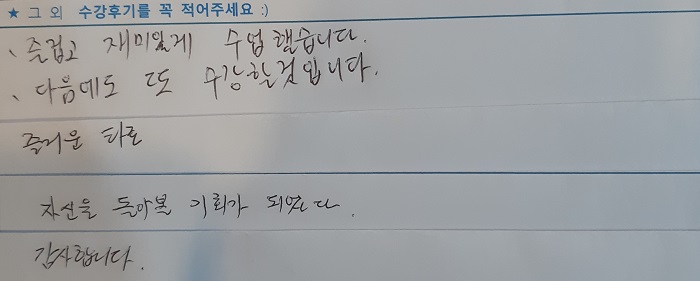 ★ 그 외 수강후기를 꼭 적어주세요 :)
、즐겁고 재미있게 수업했습니다.
、다음에도 또 수강할것입니다.
즐거운 타로
자신을 돌아볼 기회가 되었다.
감사합니다.